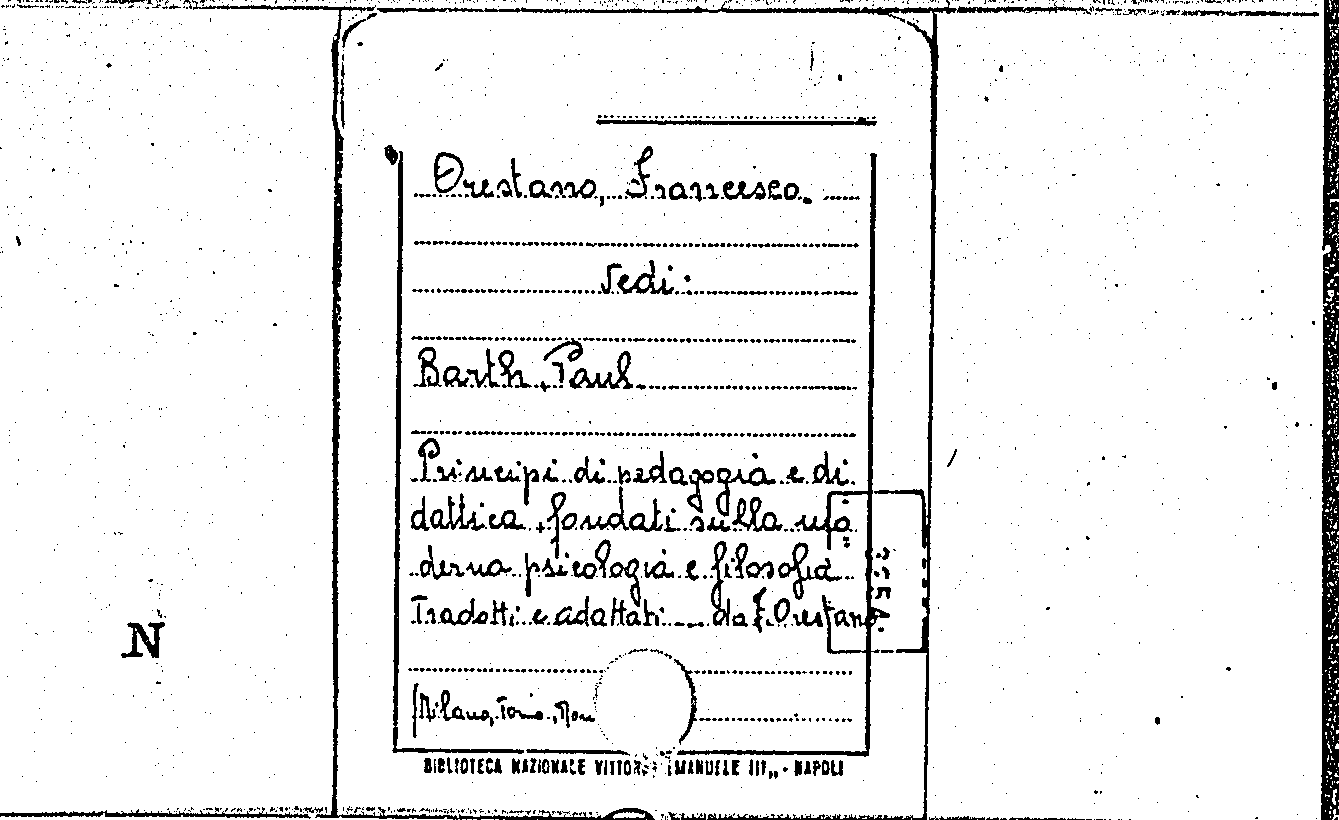 Orestano, Francesco.
Vedi:
Barth, Paul.
Principi di pedagogia e di
dattica, fondati sulla mo
derna psicologia e filosofia
Tradotti e adattati ... da F. Orestano
Milano, Torino,
N
BIBLIOTECA NAZIONALE VITTORIO EMANUELE III„ - NAPOLI